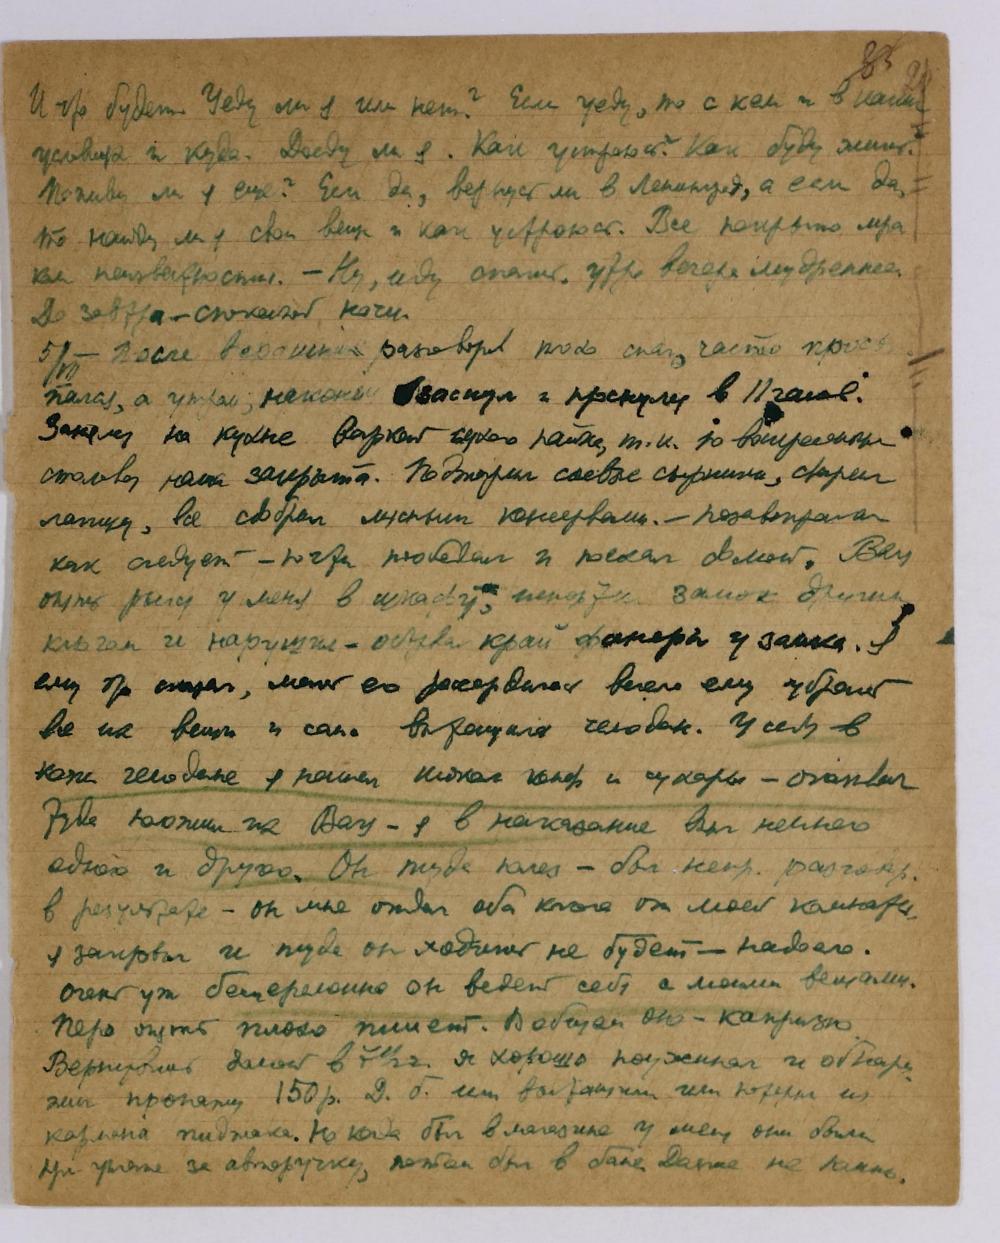 83
И что будет. Уеду ли я или нет? Если уеду, то с кем и в каких
условиях и куда. Доеду ли я. Как устроюсь? Как буду жить?
Поживу ли я еще? Если да, вернусь ли в Ленинград, а если да,
то найду ли я свои вещи и как устроюсь. Все покрыто мра
ком неизвестности. — Ну, иду спать. Утро вечера мудренее.
До завтра — спокойной ночи.
После разговора плохо спал, часто просы
пался, а утром, наконец заснул и проснулся в 11 часов.
на кухне варкой сухого пайка, т.к. по воскресеньям
столовая наша закрыта. Поджарил соевые сырники, сварил
лапшу, все сдобрил мясными консервами. — позавтракал
как следует — почти пообедал и поехал домой. Вац
опять рылся у меня в шкафу, замок другим
ключом и нарушил — оторвал край фанеры у замка. Я
ему это сказал, мать его рассердилась велела ему убрать
все их вещи и сама вытащила чемодан. У себя в
чемодане я нашел конф и сухари — оказывается
туда положил их Вац — я в наказание взял немного
одного и другого. Он туда полез — был непр. разговор.
в результате — он мне отдал оба ключа от моей комнаты,
я закрыл и туда он ходить не будет — надоело.
Очень уж бесцеремонно он ведет себя с моими вещами.
Перо опять плохо пишет. Вообще оно — капризно
Вернувшись домой в я хорошо поужинал и обнару
жил пропажу 150 р. Д. б. или вытащили или потерял из
кармана пиджака. Но когда был в магазине у меня они были
при уплате за авторучку, потом был в бане. Дальше не помню.